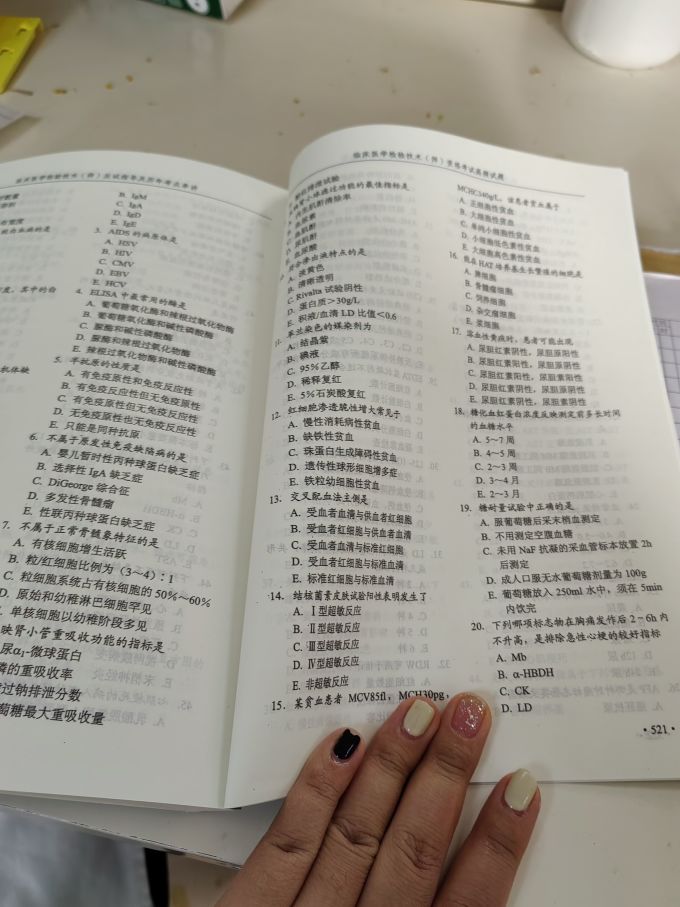 临床医学检验技术（师）应试指导及历年考点串讲
B. IgM
C. IgA
D. IgD
E. IgE
3. AIDS 的病原体是
A. HSV
B. HIV
C. CMV
D. EBV
E. HCV
4. ELISA 中最常用的酶是
A. 葡萄糖氧化酶和辣根过氧化物酶
B. 葡萄糖氧化酶和碱性磷酸酶
C. 脲酶和碱性磷酸酶
D. 脲酶和辣根过氧化物酶
E. 辣根过氧化物酶和碱性磷酸酶
5. 半抗原的性质是
A. 有免疫原性和免疫反应性
B. 有免疫反应性但无免疫原性
C. 有免疫原性但无免疫反应性
D. 无免疫原性也无免疫反应性
E. 只能是同种抗原
6. 不属于原发性免疫缺陷病的是
A. 婴儿暂时性丙种球蛋白缺乏症
B. 选择性 IgA 缺乏症
C. DiGeorge 综合征
D. 多发性骨髓瘤
E. 性联丙种球蛋白缺乏症
7. 不属于正常骨髓象特征的是
A. 有核细胞增生活跃
B. 粒/红细胞比例为（3～4）∶1
C. 粒细胞系统占有核细胞的 50%～60%
D. 原始和幼稚淋巴细胞罕见
单核细胞以幼稚阶段多见
映肾小管重吸收功能的指标是
尿α₁-微球蛋白
磷的重吸收率
过钠排泄分数
萄糖最大重吸收量
临床医学检验技术（师）资格考试高频试题
酚红排泄试验
肾小球滤过功能的最佳指标是
内生肌酐清除率
血尿素
血肌酐
尿肌酐
血尿酸
符合渗出液特点的是
A. 淡黄色
B. 清晰透明
C. Rivalta 试验阴性
D. 蛋白质＞30g/L
E. 积液/血清 LD 比值＜0.6
11. 革兰染色的媒染剂为
A. 结晶紫
B. 碘液
C. 95%乙醇
D. 稀释复红
E. 5%石炭酸复红
12. 红细胞渗透脆性增大常见于
A. 慢性消耗病性贫血
B. 缺铁性贫血
C. 珠蛋白生成障碍性贫血
D. 遗传性球形细胞增多症
E. 铁粒幼细胞性贫血
13. 交叉配血法主侧是
A. 受血者血清与供血者红细胞
B. 受血者红细胞与供血者血清
C. 受血者血清与标准红细胞
D. 受血者红细胞与标准血清
E. 标准红细胞与标准血清
14. 结核菌素皮肤试验阳性表明发生了
A. Ⅰ型超敏反应
B. Ⅱ型超敏反应
C. Ⅲ型超敏反应
D. Ⅳ型超敏反应
E. 非超敏反应
15. 某贫血患者 MCV85fl，MCH30pg，
MCHC340g/L，该患者贫血属于
A. 正细胞性贫血
B. 大细胞性贫血
C. 单纯小细胞性贫血
D. 小细胞低色素性贫血
E. 大细胞高色素性贫血
16. 能在 HAT 培养基生长繁殖的细胞是
A. 脾细胞
B. 骨髓瘤细胞
C. 饲养细胞
D. 杂交瘤细胞
17. 溶血性黄疸时，患者可能出现
A. 尿胆红素阴性，尿胆原阳性
B. 尿胆红素阳性，尿胆原阴性
C. 尿胆红素阳性，尿胆素阳性
D. 尿胆红素阴性，尿胆原阴性
E. 尿胆红素阴性，尿胆素阴性
18. 糖化血红蛋白浓度反映测定前多长时间
的血糖水平
A. 5～7 周
B. 4～5 周
C. 2～3 周
D. 3～4 月
E. 2～3 月
19. 糖耐量试验中正确的是
A. 服葡萄糖后采末梢血测定
B. 不用测定空腹血糖
C. 未用 NaF 抗凝的采血管标本放置 2h
后测定
D. 成人口服无水葡萄糖剂量为 100g
E. 葡萄糖放入 250ml 水中，须在 5min
内饮完
20. 下列哪项标志物在胸痛发作后 2～6h 内
不升高，是排除急性心梗的较好指标
A. Mb
B. α-HBDH
C. CK
D. LD
·521·